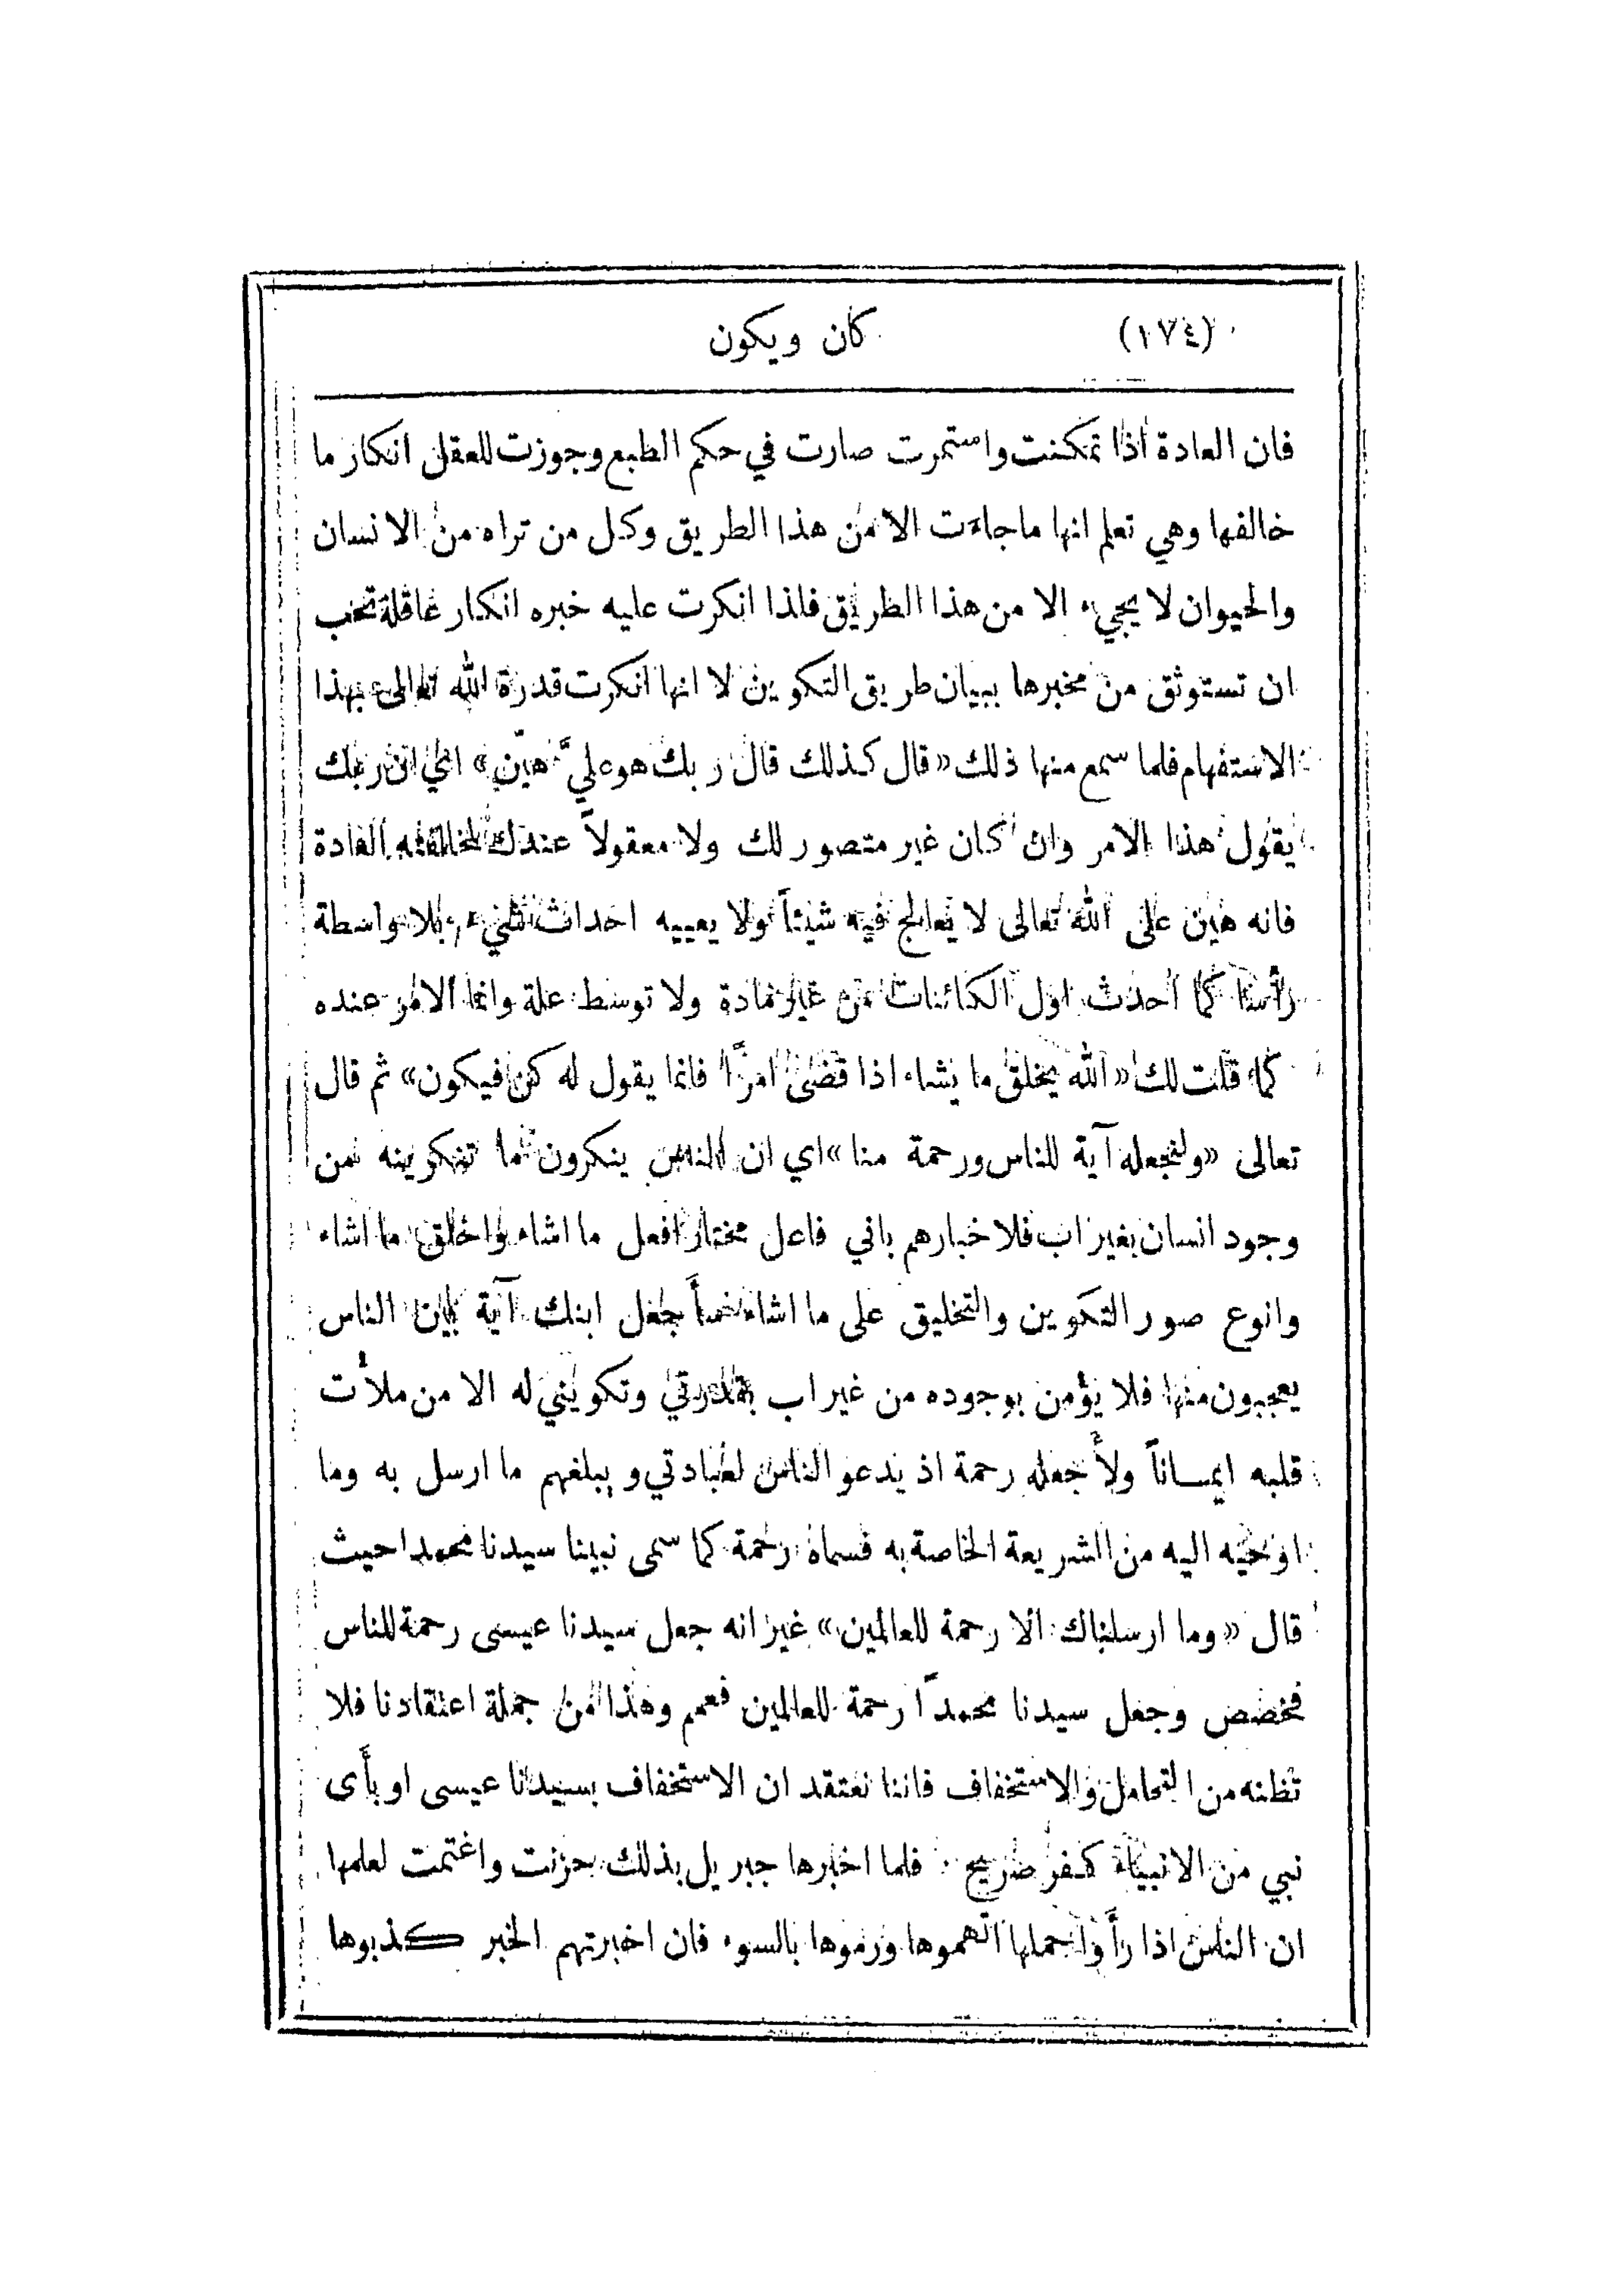 (١٧٤) كان ويكون
فان العادة اذا تمكنت واستمرت صارت في حكم الطبع وجوزت للعقل انكار ما
خالفها وهي تعلم انها ما جاءت الا من هذا الطريق وكل من تراه من الانسان
والحيوان لا يجيء الا من هذا الطريق فلذا انكرت عليه خبره انكار عاقلة تحب
ان تستوثق من مخبرها ببيان طريق التكوين لا انها انكرت قدرة الله تعالى بهذا
الاستفهام فلما سمع منها ذلك «قال كذلك قال ربك هو عليَّ هيّن» اي ان ربك
يقول هذا الامر وان كان غير متصور لك ولا معقولاً عندك لمخالفته العادة
فانه هين على الله تعالى لا يعالج فيه شيئاً ولا يعييه احداث شيء بلا واسطة
رأسا كما احدث اول الكائنات من غير مادة ولا توسط علة وانما الامر عنده
كما قلت لك «الله يخلق ما يشاء اذا قضى امرًا فانما يقول له كن فيكون» ثم قال
تعالى «ولنجعله آية للناس ورحمة منا» اي ان الناس ينكرون ما تنكرينه من
وجود انسان بغير اب فلاخبارهم باني فاعل مختار افعل ما اشاء واخلق ما اشاء
وانوع صور التكوين والتخليق على ما اشاء سأجعل ابنك آية بين الناس
يعجبون منها فلا يؤمن بوجوده من غير اب بقدرتي وتكويني له الا من ملأت
قلبه ايمـــاناً ولأجعله رحمة اذ يدعو الناس لعبادتي ويبلغهم ما ارسل به وما
اوحيه اليه من الشريعة الخاصة به فسماه رحمة كما سمى نبينا سيدنا محمدا حيث
قال «وما ارسلناك الا رحمة للعالمين» غير انه جعل سيدنا عيسى رحمة للناس
فخصص وجعل سيدنا محمدًا رحمة للعالمين فعمم وهذا من جملة اعتقادنا فلا
تظنه من التحامل والاستخفاف فاننا نعتقد ان الاستخفاف بسيدنا عيسى او بأى
نبي من الانبياء كفر صريح · فلما اخبرها جبريل بذلك حزنت واغتمت لعلمها
ان الناس اذا رأوا حملها اتهموها ورموها بالسوء فان اخبرتهم الخبر كذبوها